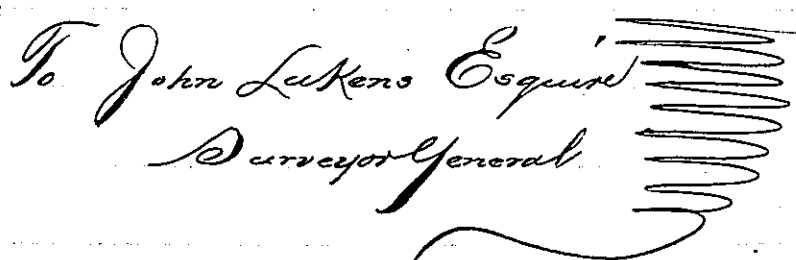 To John Lukens Esquire
Surveyor General